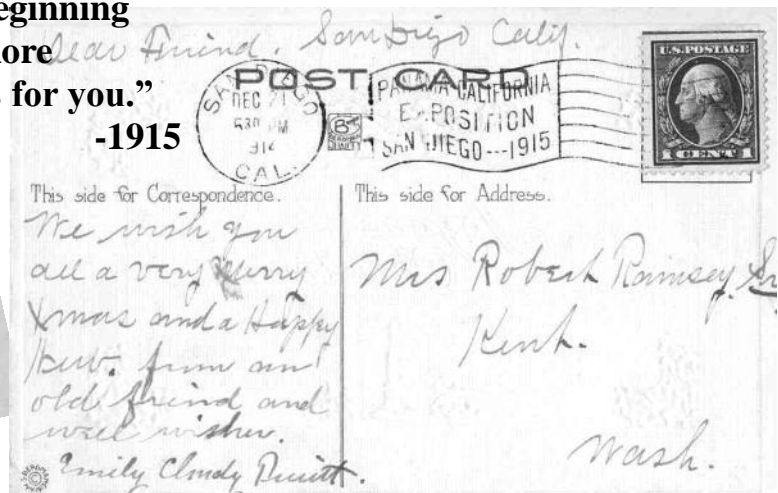 eginning
ore
s for you.”
-1915
Dear Friend. San Diego Calif.
POST CARD
SAN DIEGO
DEC 21
530 PM
CAL.
PANAMA CALIFORNIA
EXPOSITION
SAN DIEGO---1915
U.S. POSTAGE
1 CENT 1
This side for Correspondence.
This side for Address.
We wish you
all a very Merry
Xmas and a Happy
from an
old friend and
well wisher.
Emily Cloudy
Mrs Robert Ramsey Sr
Kent.
Wash.